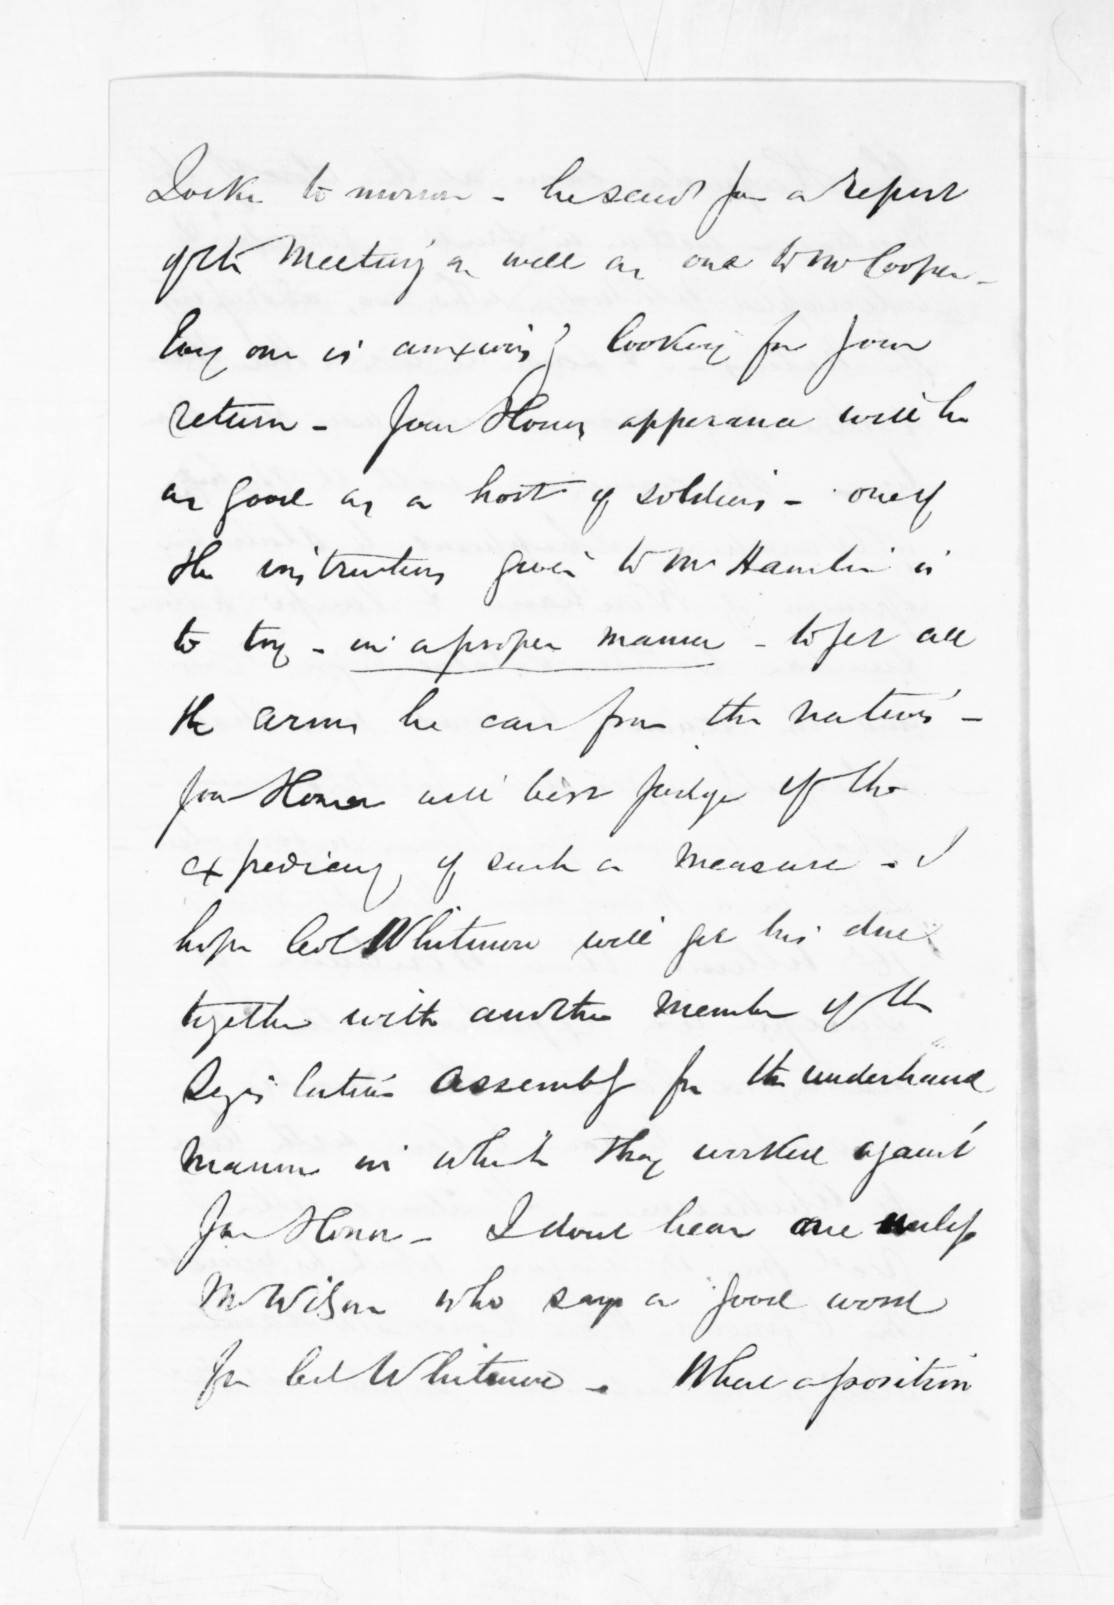 Locke to morrow - he send you a report
of the Meeting as well as one to Mr Cooper -
Every one is anxiously looking for your
return - Your Honors apperance will be
as good as a host of soldiers - one of
the instructions given to Mr Hamlin is
to try - in a proper manner - to get all
the arms he can from the natives -
Your Honor will best judge of the
expediency of such a measure - I
hope Col Whitmore will get his due
together with another member of the
Legislative Assembly for the underhand
manner in which they worked against
Your Honor - I dont hear one unless
Mr Wilson who says a good word
for Col Whitmore - What a position